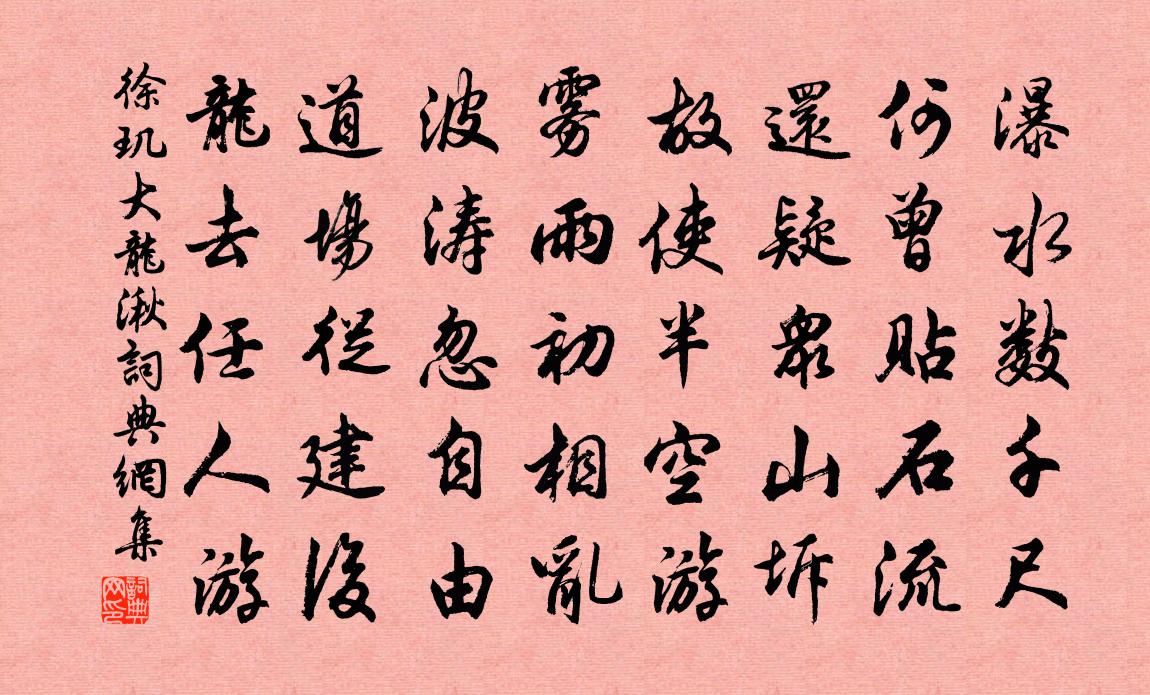 瀑水数千尺
何曾貼石流
還疑衆山坼
故使半空游
雾雨初相亂
波濤忽自由
道場從建後
龍去任人游
徐玑大龍湫詞典網集
詞典网印